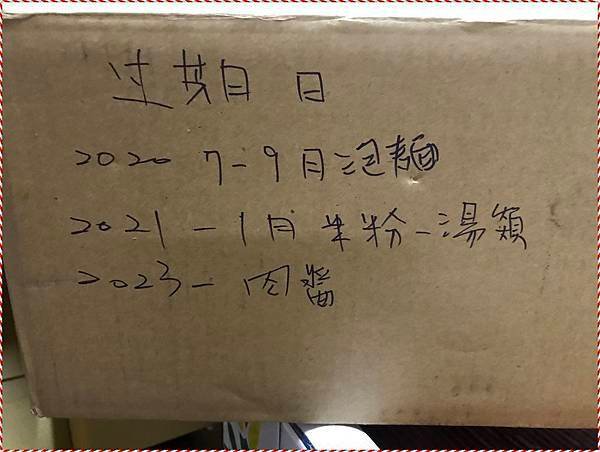 过期日
2020 7-9月泡麵
2021-1月米粉-湯類
2023-肉醬